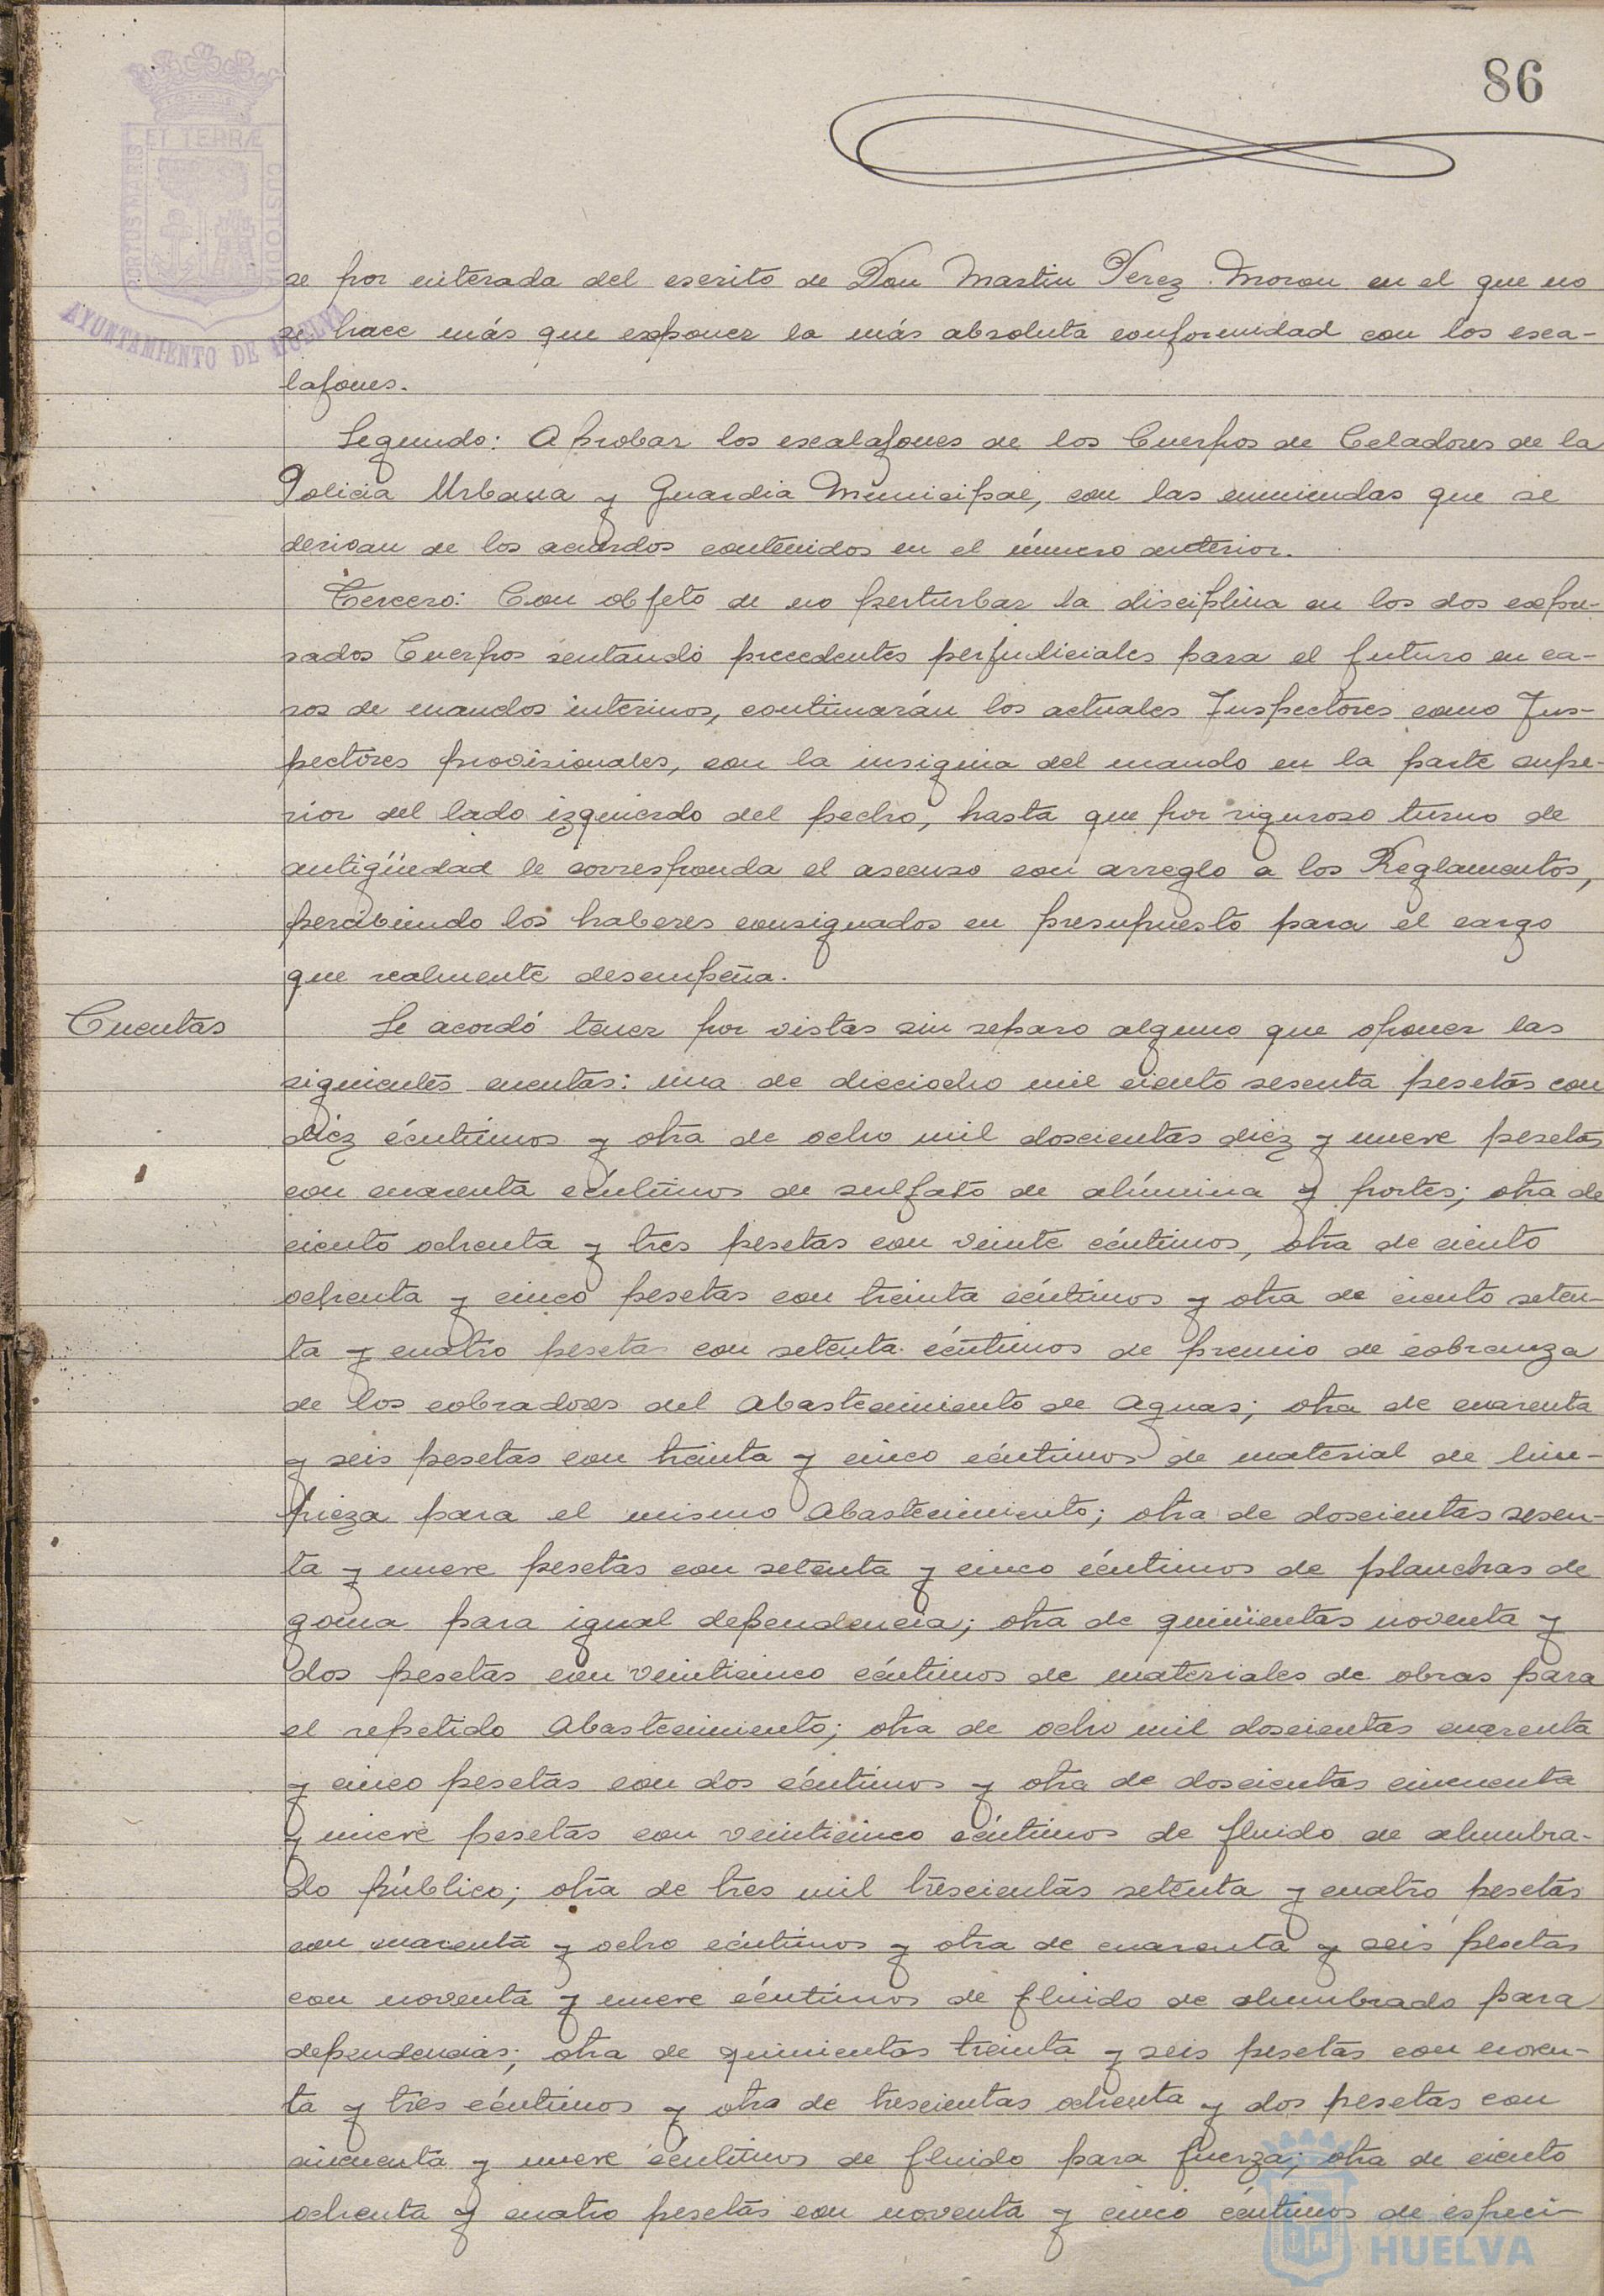 86
PORTUS MARIS ET TERRÆ CUSTODIA
AYUNTAMIENTO DE HUELVA
se por enterada del escrito de Don Martin Perez Moron en el que no
se hace más que exponer la más absoluta conformidad con los esca-
lafones.
Segundo: Aprobar los escalafones de los Cuerpos de Celadores de la
Policia Urbana y Guardia Municipal, con las enmiendas que se
derivan de los acuerdos contenidos en el número anterior.
Tercero: Con objeto de no perturbar la disciplina en los dos expre-
sados Cuerpos sentando precedentes perjudiciales para el futuro en ca-
sos de mandos interinos, continuarán los actuales Inspectores como Ins-
pectores provisionales, con la insignia del mando en la parte supe-
rior del lado izquierdo del pecho, hasta que por riguroso turno de
antigüedad le corresponda el ascenso con arreglo a los Reglamentos,
percibiendo los haberes consignados en presupuesto para el cargo
que realmente desempeña.
Cuentas
Se acordó tener por vistas sin reparo alguno que oponer las
siguientes cuentas: una de dieciocho mil ciento sesenta pesetas con
diez céntimos y otra de ocho mil doscientas diez y nueve pesetas
con cuarenta céntimos de sulfato de alúmina y portes; otra de
ciento ochenta y tres pesetas con veinte céntimos, otra de ciento
ochenta y cinco pesetas con treinta céntimos y otra de ciento seten-
ta y cuatro pesetas con setenta céntimos de premio de cobranza
de los cobradores del Abastecimiento de Aguas; otra de cuarenta
y seis pesetas con treinta y cinco céntimos de material de lim-
pieza para el mismo Abastecimiento; otra de doscientas sesen-
ta y nueve pesetas con setenta y cinco céntimos de planchas de
goma para igual dependencia; otra de quinientas noventa y
dos pesetas con veinticinco céntimos de materiales de obras para
el repetido Abastecimiento; otra de ocho mil doscientas cuarenta
y cinco pesetas con dos céntimos y otra de doscientas cincuenta
y nueve pesetas con veinticinco céntimos de fluido de alumbra-
do público; otra de tres mil trescientas setenta y cuatro pesetas
con cuarenta y ocho céntimos y otra de cuarenta y seis pesetas
con noventa y nueve céntimos de fluido de alumbrado para
dependencias; otra de quinientas treinta y seis pesetas con noven-
ta y tres céntimos y otra de trescientas ochenta y dos pesetas con
cincuenta y nueve céntimos de fluido para fuerza; otra de ciento
ochenta y cuatro pesetas con noventa y cinco céntimos de especi-
HUELVA